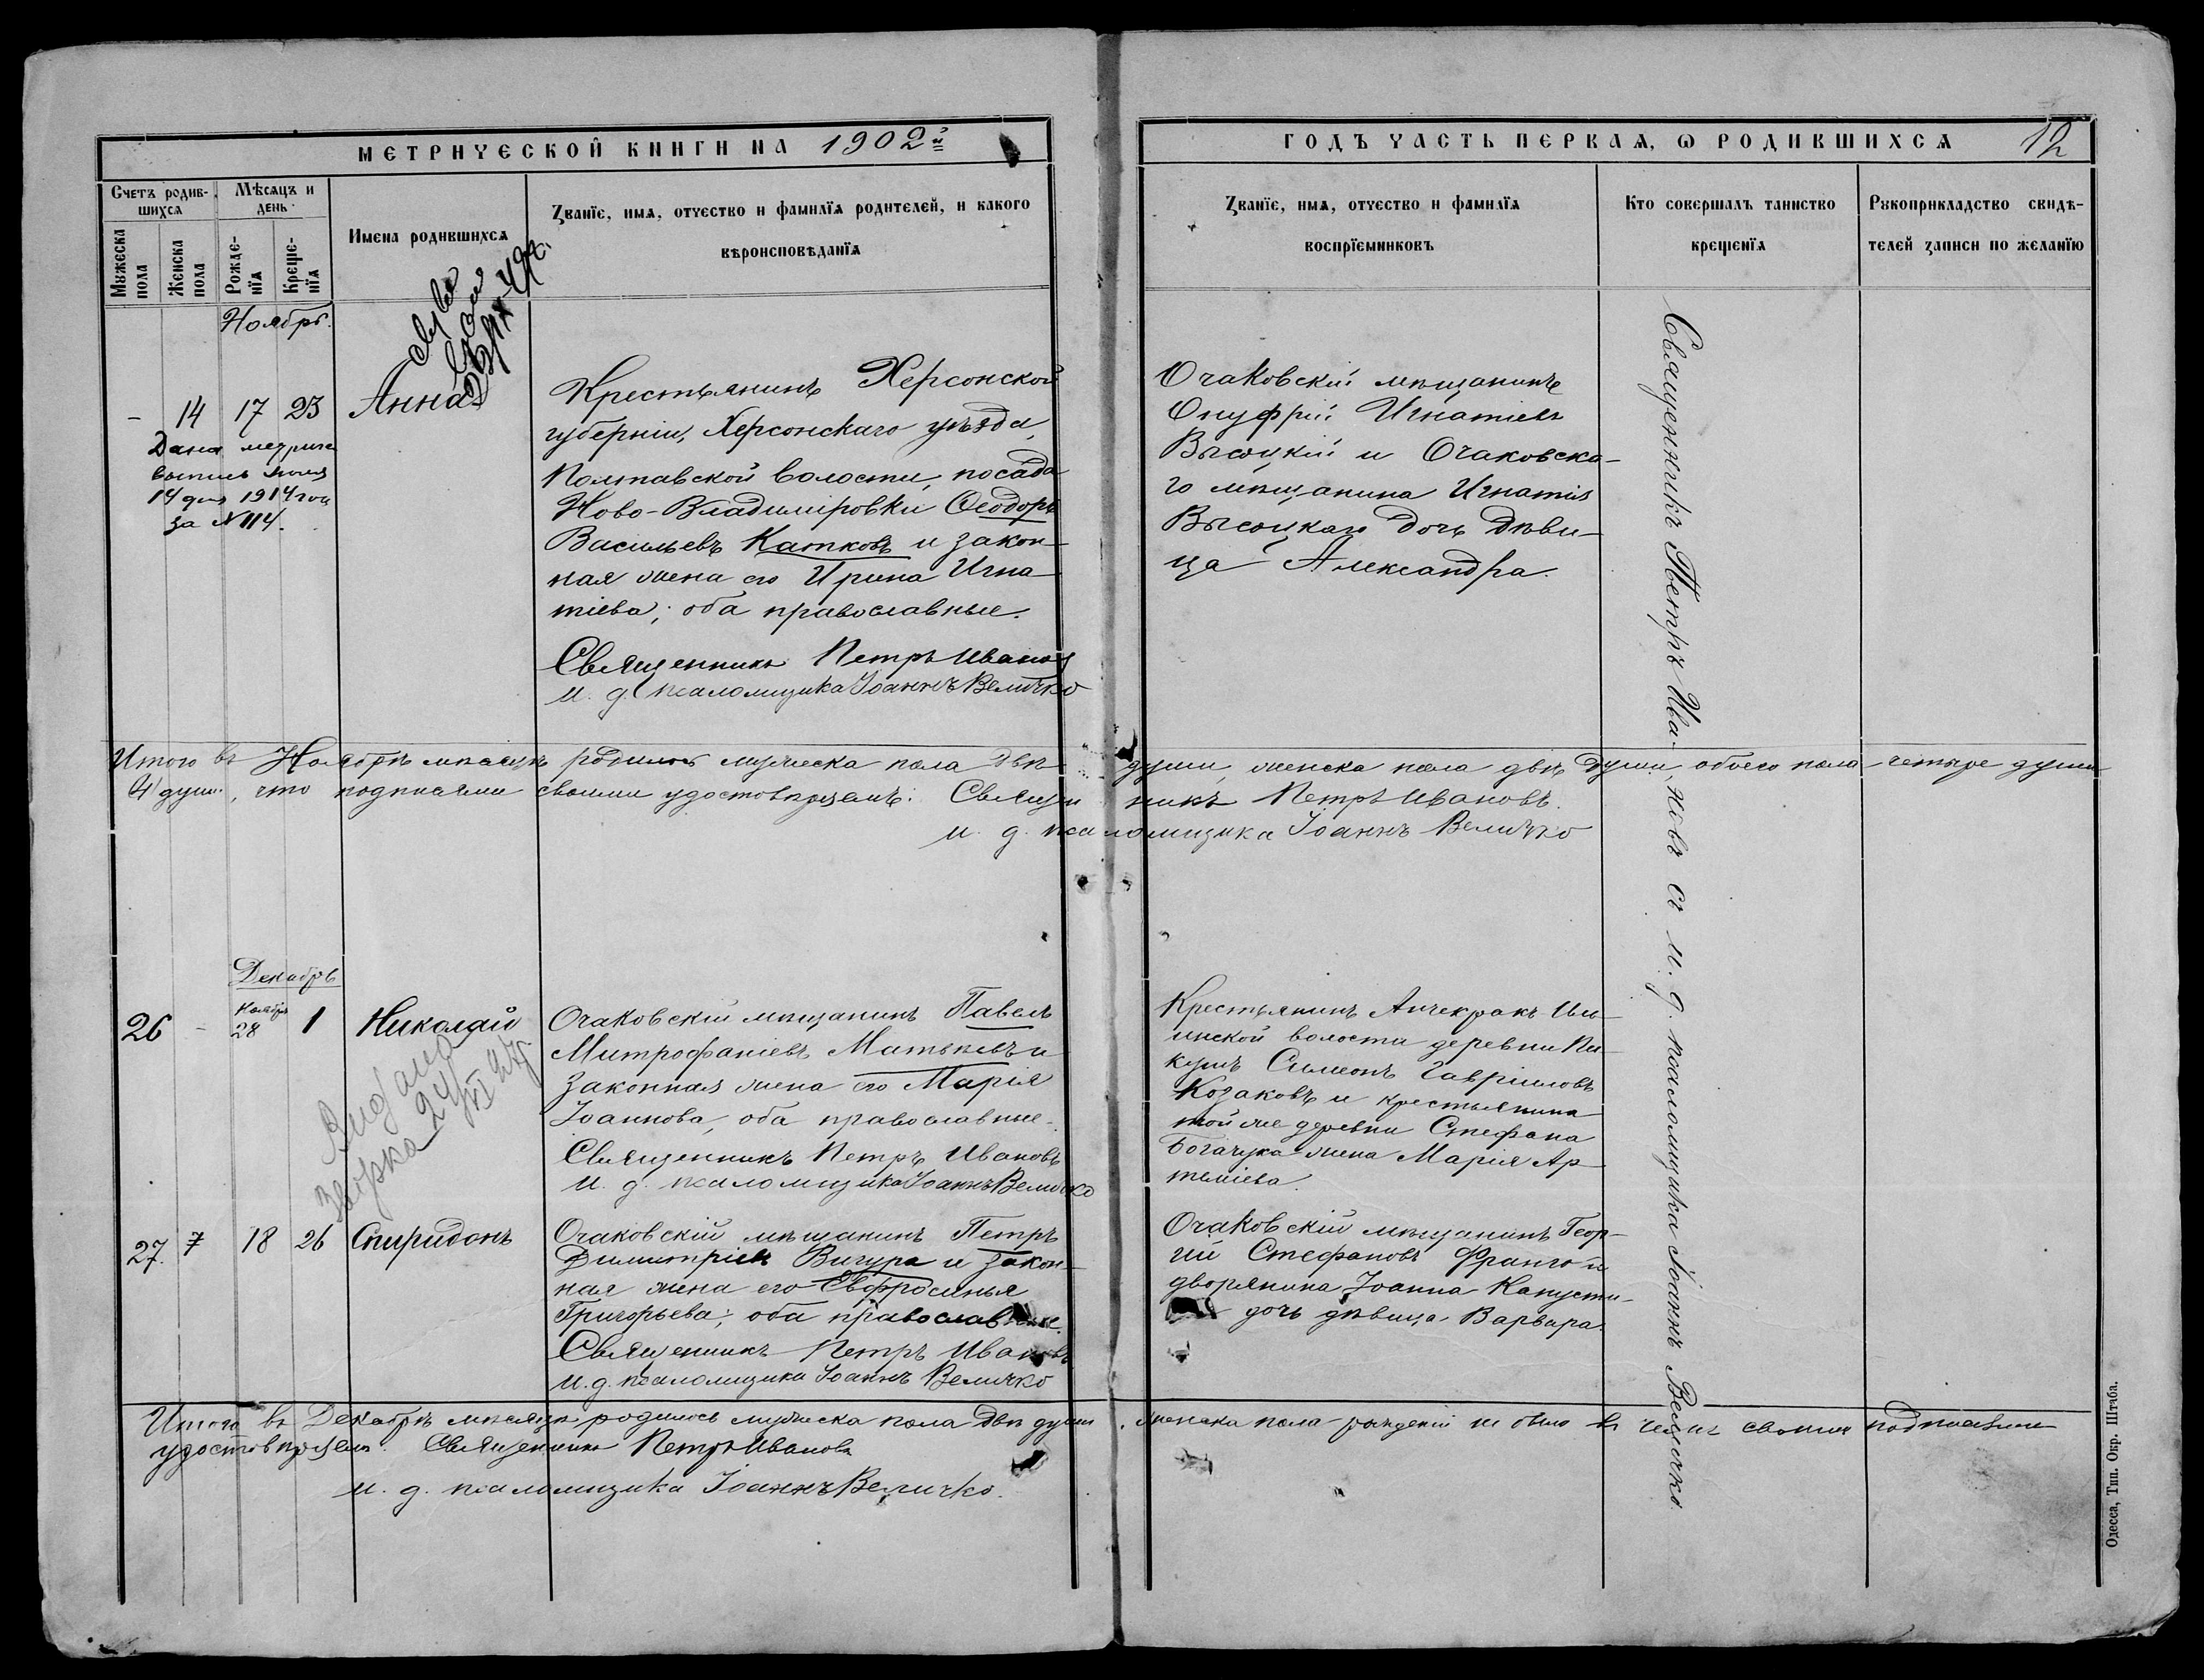 МЕТРИЧЕСКОЙ КНИГИ НА 1902й
ГОДЪ ЧАСТЬ ПЕРВАЯ, Ѡ РОДИВШИХСЯ
12
Счетъ родив-
шихся
Мѣсяцъ и
день
Мужеска
пола
Женска
пола
Рожде-
нїя
Креще-
нїя
Имена родившихся
Званїе, имя, отчество и фамилїя родителей, и какого
вѣроисповѣданїя
Званїе, имя, отчество и фамилїя
воспрїемниковъ
Кто совершалъ таинство
крещенїя
Рукоприкладство свидѣ-
телей записи по желанїю
Ноябрь.
- 14 17 23 Анна
Дана метричес
выпись
14 дня 1914 года
за №114.
Крестьянинъ Херсонской
губерніи, Херсонскаго уѣзда,
Полтавской волости, посада
Ново-Владиміровки Ѳеодоръ
Васильевъ Катковъ и закон-
ная жена его Ирина Игна-
тіева; оба православные.
Священникъ Петръ Ивановъ
и. д. псаломщика Іоаннъ Величко
Очаковскій мѣщанинъ
Онуфрій Игнатіевъ
Высоцкій и Очаковска-
го мѣщанина Игнатія
Высоцкаго дочь дѣви-
ца Александра.
Священникъ Петръ Ива-
новъ съ и. д. псаломщика Іоаннъ Величко.
Итого въ Ноябрѣ мѣсяцѣ родилось мужеска пола двѣ души, женска пола двѣ души, обоего пола четыре души
4 души, что подписями своими удостовѣряемъ: Священникъ Петръ Ивановъ.
и. д. псаломщика Іоаннъ Величко
Декабрь
26 - Ноября 28 1 Николай
Видано
24
VI
Очаковскій мѣщанинъ Павелъ
Митрофаніевъ Матвѣевъ и
законная жена его Марія
Іоаннова, оба православные.
Священникъ Петръ Ивановъ
и. д. псаломщика Іоаннъ Величко
Крестьянинъ Анчекракъ-Иль-
инской волости деревни Пи-
кузъ Симеонъ Гавріиловъ
Козаковъ и крестьянина
той же деревни Стефана
Богачука жена Марія Ар-
теміева.
27. 18 26 Спиридонъ
Очаковскій мѣщанинъ Петръ
Димитріевъ Вигура и закон-
ная жена его Евфросинья
Григорьева; оба православные.
Священникъ Петръ Ивановъ
и. д. псаломщика Іоаннъ Величко
Очаковскій мѣщанинъ Геор-
гій Стефановъ Франго и
дворянина Іоанна Капусти-
дочь дѣвица Варвара.
Итого въ Декабрѣ мѣсяцѣ родилось мужеска пола двѣ души, женска пола рожденій не было въ чемъ своими подписями
удостовѣряемъ. Священникъ Петръ Ивановъ
и. д. псаломщика Іоаннъ Величко.
Одесса, Тип. Окр. Штаба.